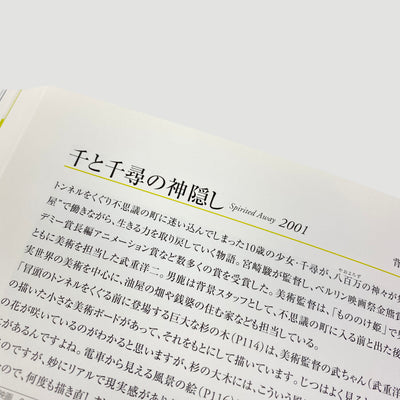 千と千尋の神隠し Spirited Away 2001
トンネルをくぐり不思議の町に迷い込んでしまった10歳の少女・千尋が、八百万の神々が
屋"で働きながら、生きる力を取り戻していく物語。宮崎駿が監督し、ベルリン映画祭金熊賞
デミー賞長編アニメーション賞など数多くの賞を受賞した。美術監督は、「もののけ姫」で
ともに美術を担当した武重洋二。男鹿は背景スタッフとして、不思議の町に入る前と出た後
実世界の美術を中心に、油屋の畑や銭婆の住む家なども担当している。
「冒頭のトンネルをくぐる前に登場する巨大な杉の木(P114)は、美術監督の武ちゃん(武重
の描いた小さな美術ボードがあって、それをもとにして描いています。じつはよく見ると
の花が咲いているのがわかると思いますが、杉の大木には、こういう
があるんですよね。電車から見える風景の絵(P116)
のですが、妙にリアルで現実感があり
ので、何度も描き直し
背